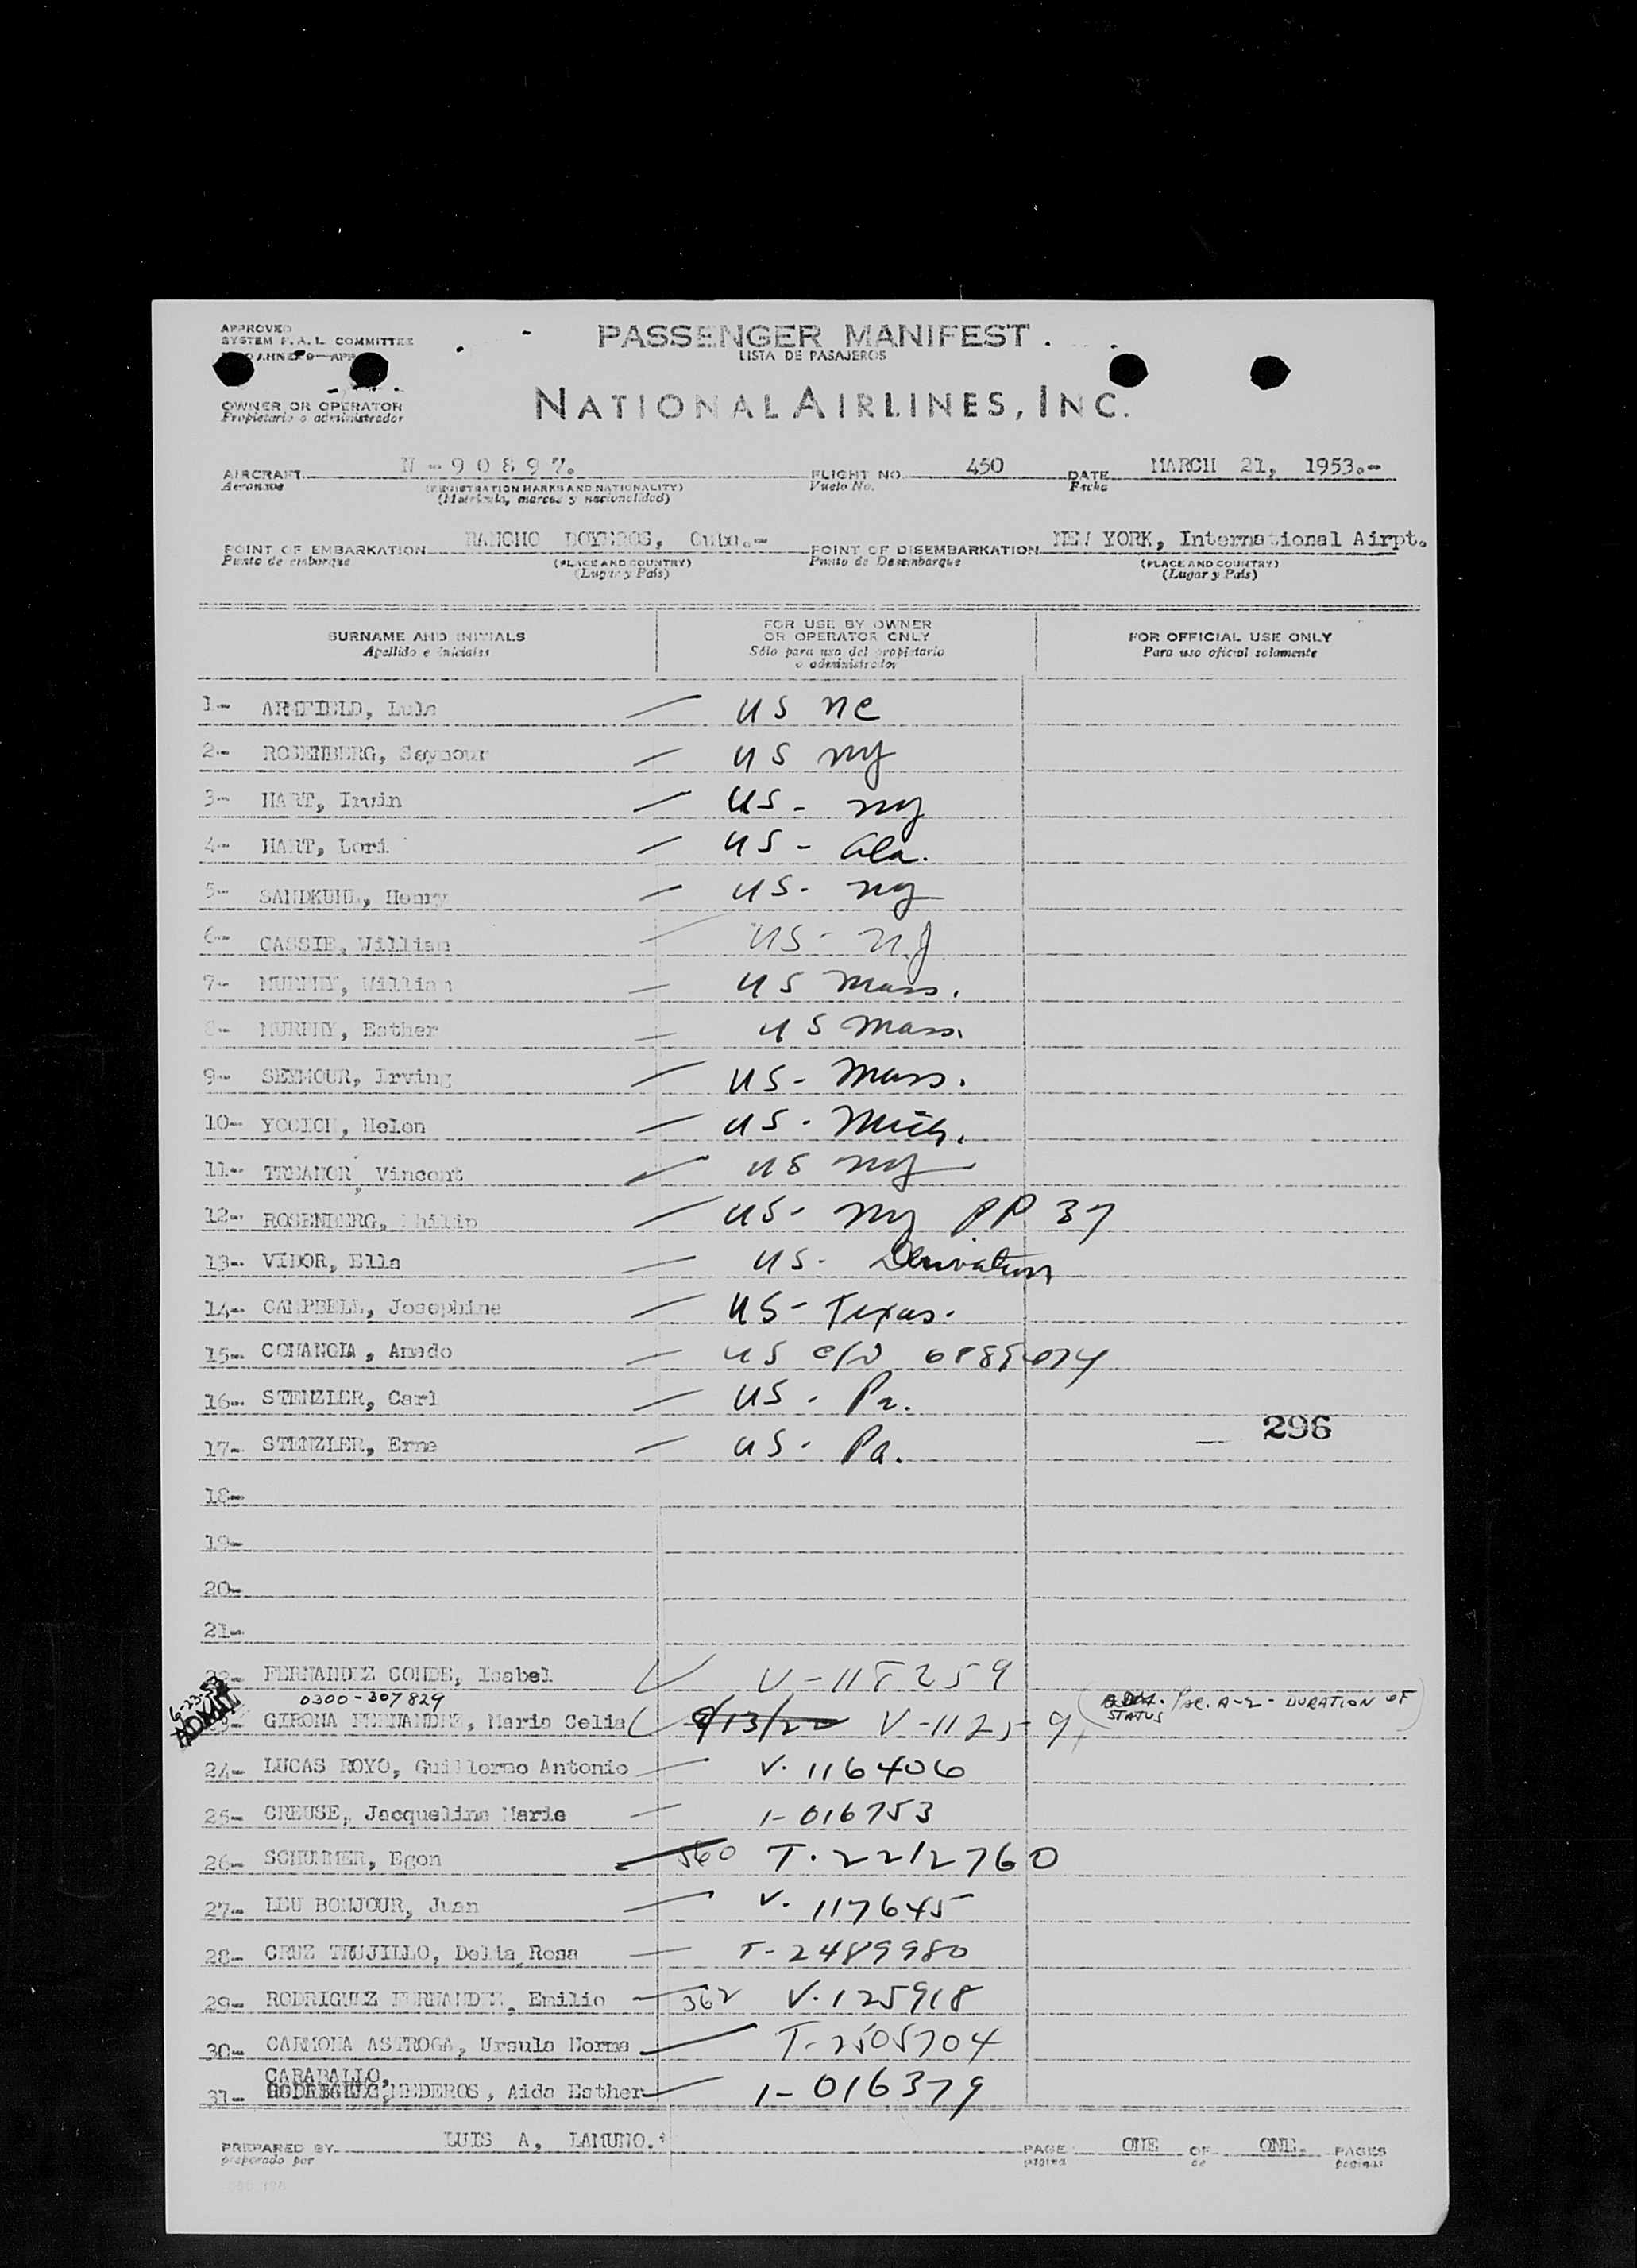 APPROVED
SYSTEM F. A. L. COMMITTEE
PASSENGER MANIFEST.
LISTA DE PASAJEROS
OWNER OR OPERATOR
Propietario o administrador
NATIONAL AIRLINES, INC.
AIRCRAFT N-90897. FLIGHT NO. 450 DATE MARCH 21, 1953.-
Aeronave (REGISTRATION MARKS AND NATIONALITY) Vuelo No. Fecha
(Matrícula, marcas y nacionalidad)
POINT OF EMBARKATION RANCHO BOYEROS, Cuba.- POINT OF DISEMBARKATION NEW YORK, International Airpt.
Punto de embarque (PLACE AND COUNTRY) Punto de Desembarque (PLACE AND COUNTRY)
(Lugar y País) (Lugar y País)
SURNAME AND INITIALS
Apellido e iniciales
FOR USE BY OWNER
OR OPERATOR ONLY
Sólo para uso del propietario
o administrador
FOR OFFICIAL USE ONLY
Para uso oficial solamente
1- ARMFIELD, Lula US NC
2- ROSENBERG, Seymour US NY
3- HART, Irwin US - NY
4- HART, Lori US - Ala.
5- SANDKUHL, Henry US - NY
6- CASSIE, William US - N.J
7- MURPHY, William US Mass.
8- MURPHY, Esther US Mass.
9- SEYMOUR, Irving US - Mass.
10- Helen US - Mich.
11- TREANOR, Vincent US NY
12- ROSENBERG, Philip US - NY PP 37
13- VIDOR, Ella US - Derivation
14- CAMPBELL, Josephine US - Texas.
15- Amado US
16- STENZLER, Carl US - Pa.
17- STENZLER, Erna US - Pa.
296
18-
19-
20-
21-
22- FERNANDEZ CONDE, Isabel V-118259
0300-307829
6-23-53
ADMIT
23- GIRONA FERNANDEZ, Maria Celia 9/13/20 V-11259 (ADM. Par. A-2 - DURATION OF
STATUS)
24- LUCAS ROYO, Guillermo Antonio V. 116406
25- CREUSE, Jacqueline Marie 1-016753
26- Egon 560 T. 2212760
27- LEU BONJOUR, Juan V. 117645
28- CRUZ TRUJILLO, Delia Rosa T-2489980
29- RODRIGUEZ FERNANDEZ, Emilio 362 V. 125918
30- CARMONA ASTROGA, Ursula Norma T-2505704
CARABALLO,
31- MEDEROS, Aida Esther 1-016379
PREPARED BY LUIS A, LAMUNO. PAGE ONE OF ONE. PAGES
preparado por página de páginas